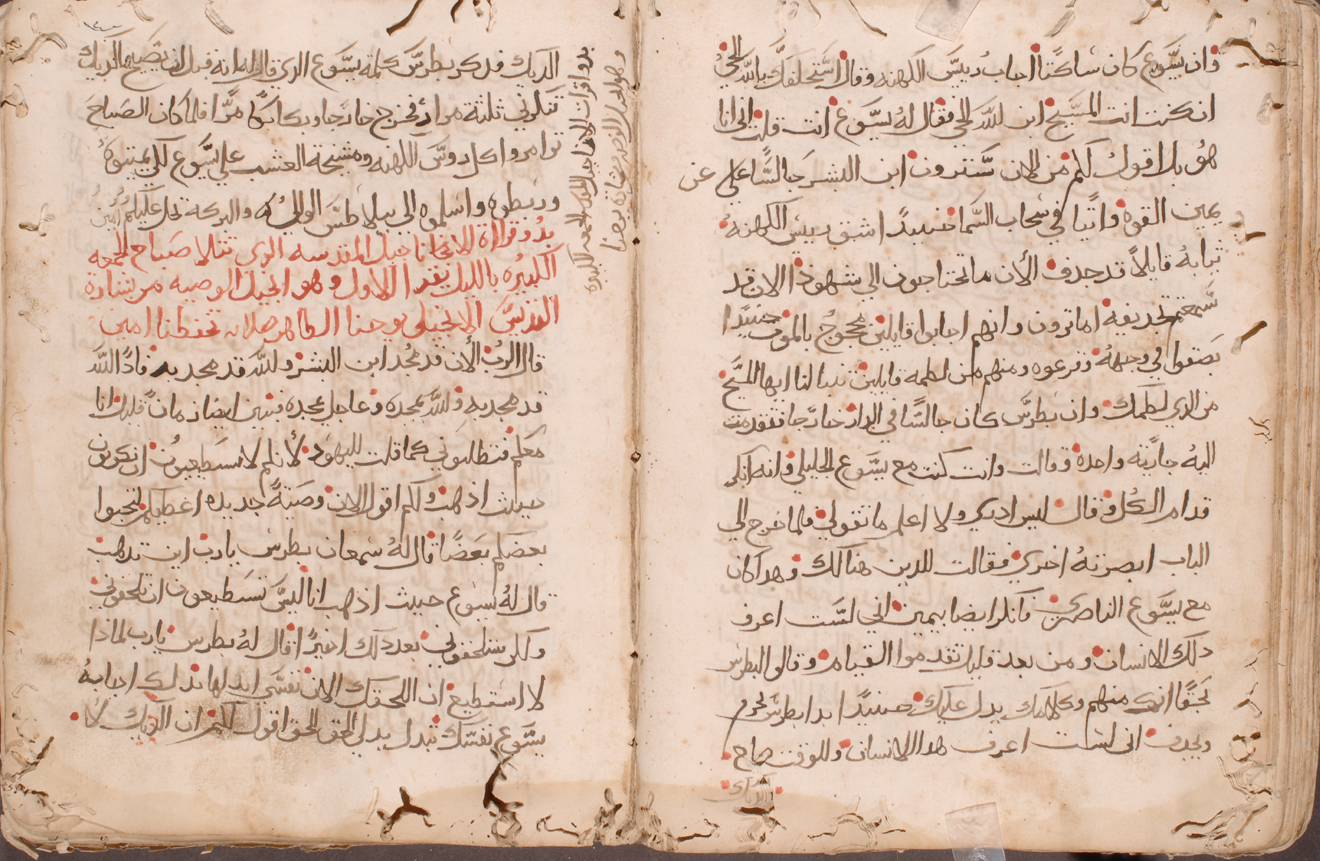 وان يسوع كان ساكتا اجاب رييس الكهنه وقال استحلفك بالله الحي
ان كنت انت المسيح ابن الله الحي فقال له يسوع انت قلت اني انا
هو بل اقول لكم من الان سترون ابن البشر جالسا علي عن
يمين القوه واتيا في سحاب السما حينيدا شق رييس الكهنه
ثيابه قايلا قد جدف الان ما تحتاجون الي شهود الان قد
سمعتم تجديفه اما ترون وانهم اجابوا قايلين محجوج بالموت حينيدا
بصقوا في وجهه وقرعوه ومنهم من لطمه قايلين تنبا لنا ايها المسيح
من الدي لطمك وان بطرس كان جالسا في الدار خارجا فتقدمت
اليه جاريه واحده وقالت وانت كنت مع يسوع الجليلي فانه انكر
قدام الكل وقال ليس ادري ولا اعلم ما تقولي فلما خرج الي
الباب ابصرته اخري فقالت للدين هنالك وهدا كان
مع يسوع الناصري فانكر ايضا بيمين اني لست اعرف
دلك الانسان ومن بعد قليل تقدموا القيام وقالوا لبطرس
بحقا انك منهم وكلامك يدل عليك حينيدا بدا بطرس يحرم
ويجدف اني لست اعرف هدا الانسان وللوقت صاح
الديك
الديك فدكر بطرس كلمة يسوع الدي قال له انه قبل ان يصيح الديك
تنكرني ثلثة مرار فخرج خارجا وبكا بكا مرا فلما كان الصباح
توامروا كل روس الكهنه ومشيخة العشب علي يسوع لكي يميتوه
وربطوه واسلموه الي بيلاطس الوالي والبركة تحل عليكم امين
بدو قراة الاناجيل المقدسه الدي تتلا صباح الجمعه
الكبيره بالليل يقرا الاول وهو انجيل الوصيه من بشارة
القديس الانجيلي يوحنا الطاهر صلاته تحفظنا امين
قال الرب الان قد مجد ابن البشر والله قد مجد به فاد الله
قد مجد به والله يمجده وعاجل يمجده يا بنين ايضا زمانا قليل انا
معكم فتطلبوني كما قلت لليهود لانكم لا تستطيعون ان تكونون
حيث ادهب ولكم اقول الان وصية جديده اعطيكم لتحبوا
بعضكم بعضا قال له سمعان بطرس يارب اين تدهب
قال له يسوع حيث ادهب انا ليس تستطيعون ان تلحقوني
ولكن ستلحقوني بعد دلك اخيرا قال له بطرس يارب لمادا
لا استطيع ان الحقك الان نفسي ابدلها بدلك اجابه
يسوع نفسك تبدل بدلي الحق الحق اقول لكم ان الديك لا
بدو قراة الاناجيل المقدسه الجمعه الكبيره